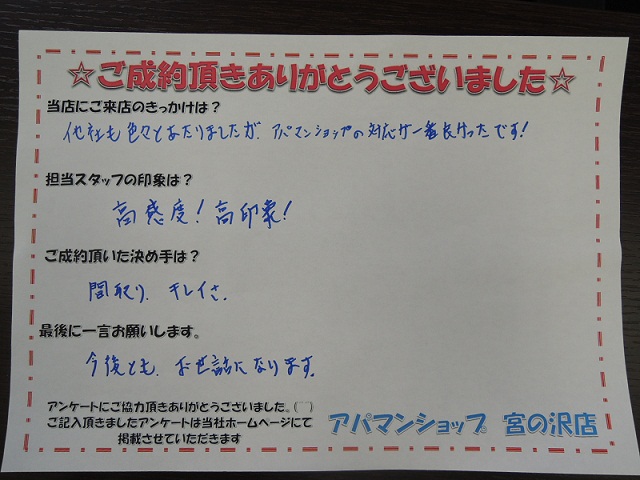 ☆ご成約頂きありがとうございました☆
当店にご来店のきっかけは？
他社も色々とあたりましたが、アパマンショップの対応が一番良かったです！
担当スタッフの印象は？
高感度！高印象！
ご成約頂いた決め手は？
間取り、キレイさ、
最後に一言お願いします。
今後とも、お世話になります。
アンケートにご協力頂きありがとうございました。(^^)
ご記入頂きましたアンケートは当社ホームページにて
掲載させていただきます
アパマンショップ 宮の沢店